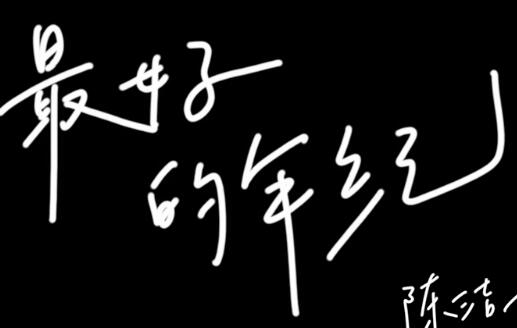 最好
的年纪
陈洁